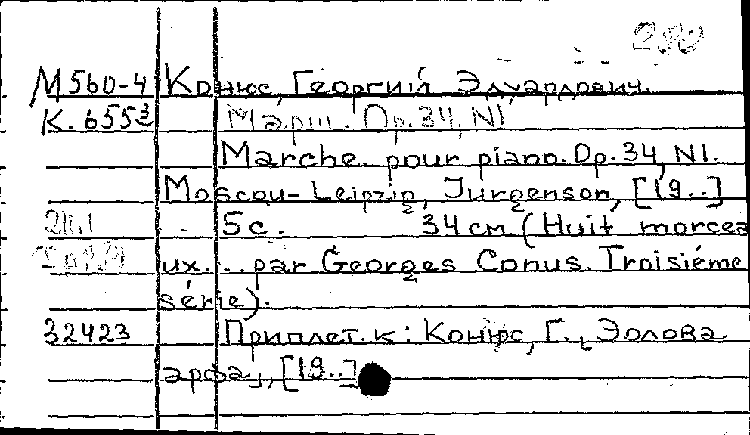 М560-4 Конюс, Георгий Эдуардович.
К.655³ Марш. Op.34, N1
Marche pour piano. Op.34, N1.
Moscou-Leipzig, Jurgenson, [19..]
5с. 34см (Huit morcea
ux... par Georges Conus. Troisiéme
série).
32423 Приплет. к: Конюс, Г., Эолова
арфа, [19..]